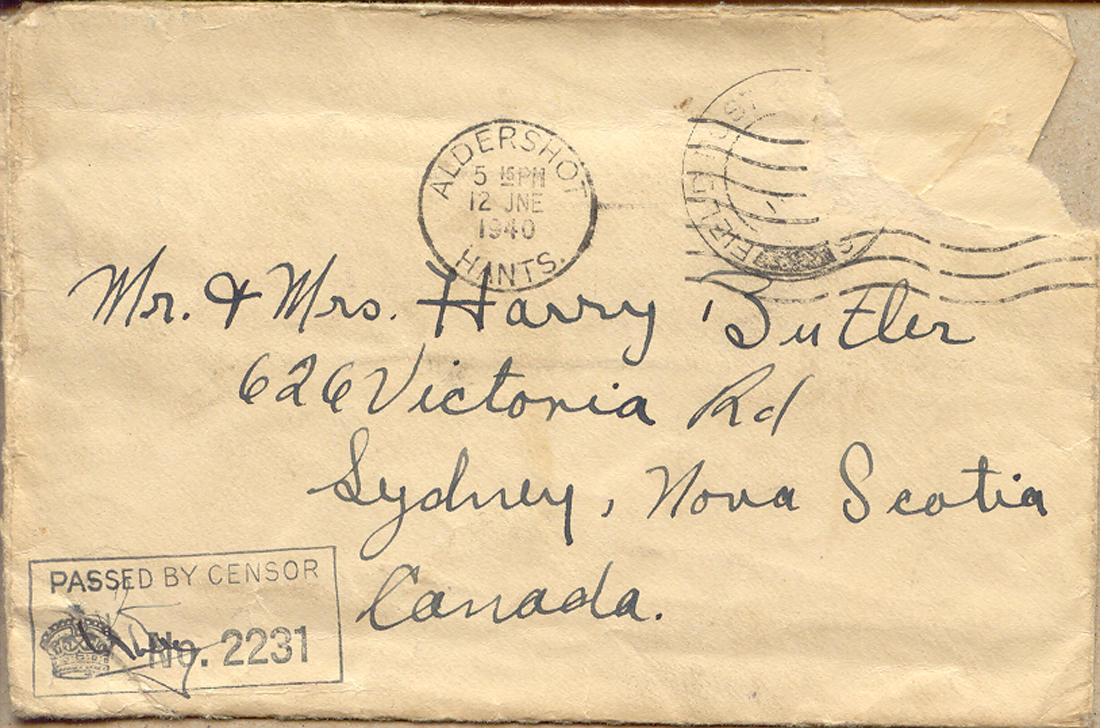 ALDERSHOT
5 15PM
12 JNE
1940
HANTS.
Mr. & Mrs. Harry Butler
626 Victoria Rd
Sydney, Nova Scotia
Canada.
PASSED BY CENSOR
No. 2231